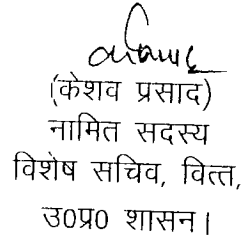 (केशव प्रसाद)
नामित सदस्य
विशेष सचिव, वित्त,
उ0प्र0 शासन।